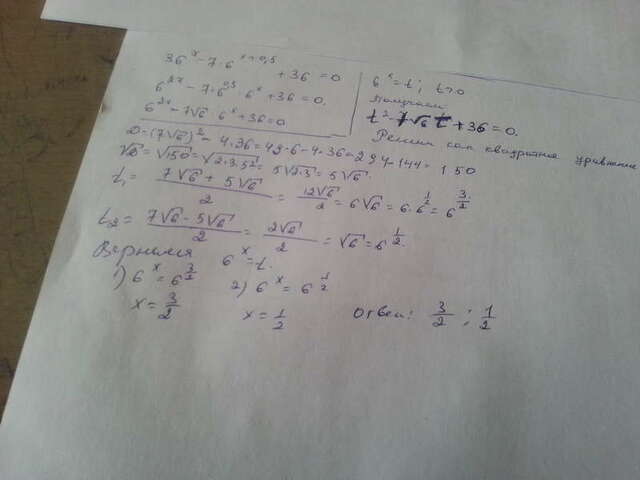 36^x - 7·6^{x+0,5} + 36 = 0
6^{2x} - 7·6^{0,5}·6^x + 36 = 0.
6^{2x} - 7√6·6^x + 36 = 0
6^x = t; t>0
Получаем
t² - 7√6 t + 36 = 0.
Решим как квадратное уравнение
D = (7√6)² - 4·36 = 49·6 - 4·36 = 294 - 144 = 150
√D = √150 = √2·3·5² = 5√2·3 = 5√6.
t₁ = (7√6 + 5√6)/2 = 12√6/2 = 6√6 = 6·6^{1/2} = 6^{3/2}
t₂ = (7√6 - 5√6)/2 = 2√6/2 = √6 = 6^{1/2}.
Вернемся 6^x = t.
1) 6^x = 6^{3/2} 2) 6^x = 6^{1/2}
x = 3/2 x = 1/2 Ответ: 3/2 ; 1/2